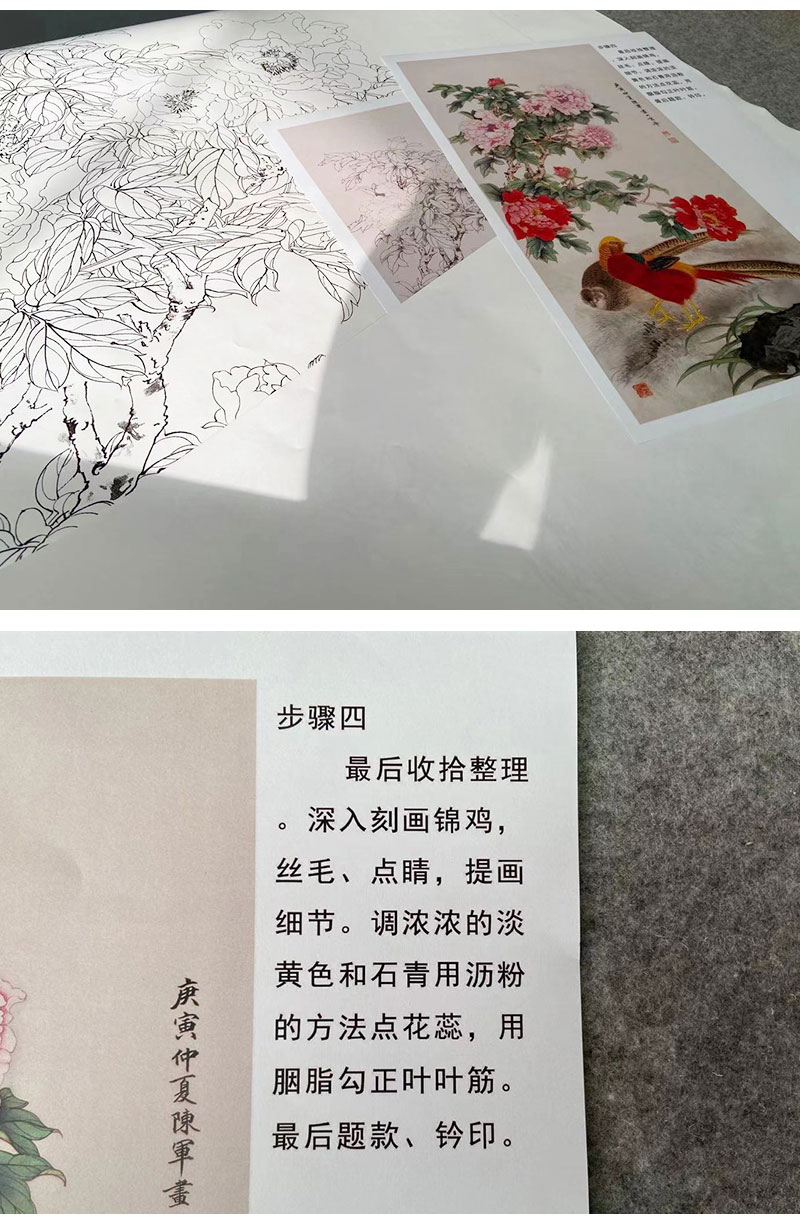 步骤四
最后收拾整理
。深入刻画锦鸡，
丝毛、点睛，提画
细节。调浓浓的淡
黄色和石青用沥粉
的方法点花蕊，用
胭脂勾正叶叶筋。
最后题款、钤印。
庚寅仲夏陳軍畫